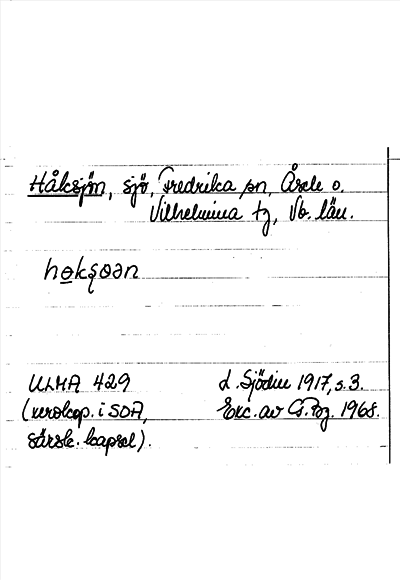 Håksjön, sjö, Fredrika sn, Åsele o.
Vilhelmina tg, Vb. län.
ULMA 429
L. Sjödin 1917, s. 3.
(xerokop. i SOA,
Exc. av 1968.
särsk. kapsel).